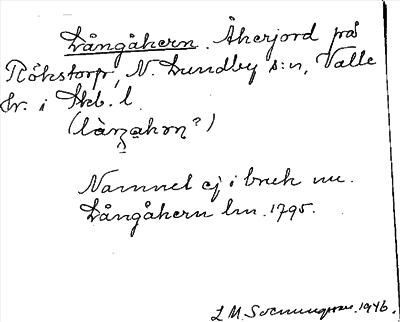 Långåkern. Åkerjord på
Rökstorp, N. Lundby s:n, Valle
hr. i Skb. l.
(làŋ̠ahon?)
Namnet ej i bruk nu.
Långåkern lm. 1795.
L M. Svenungsson. 1946.